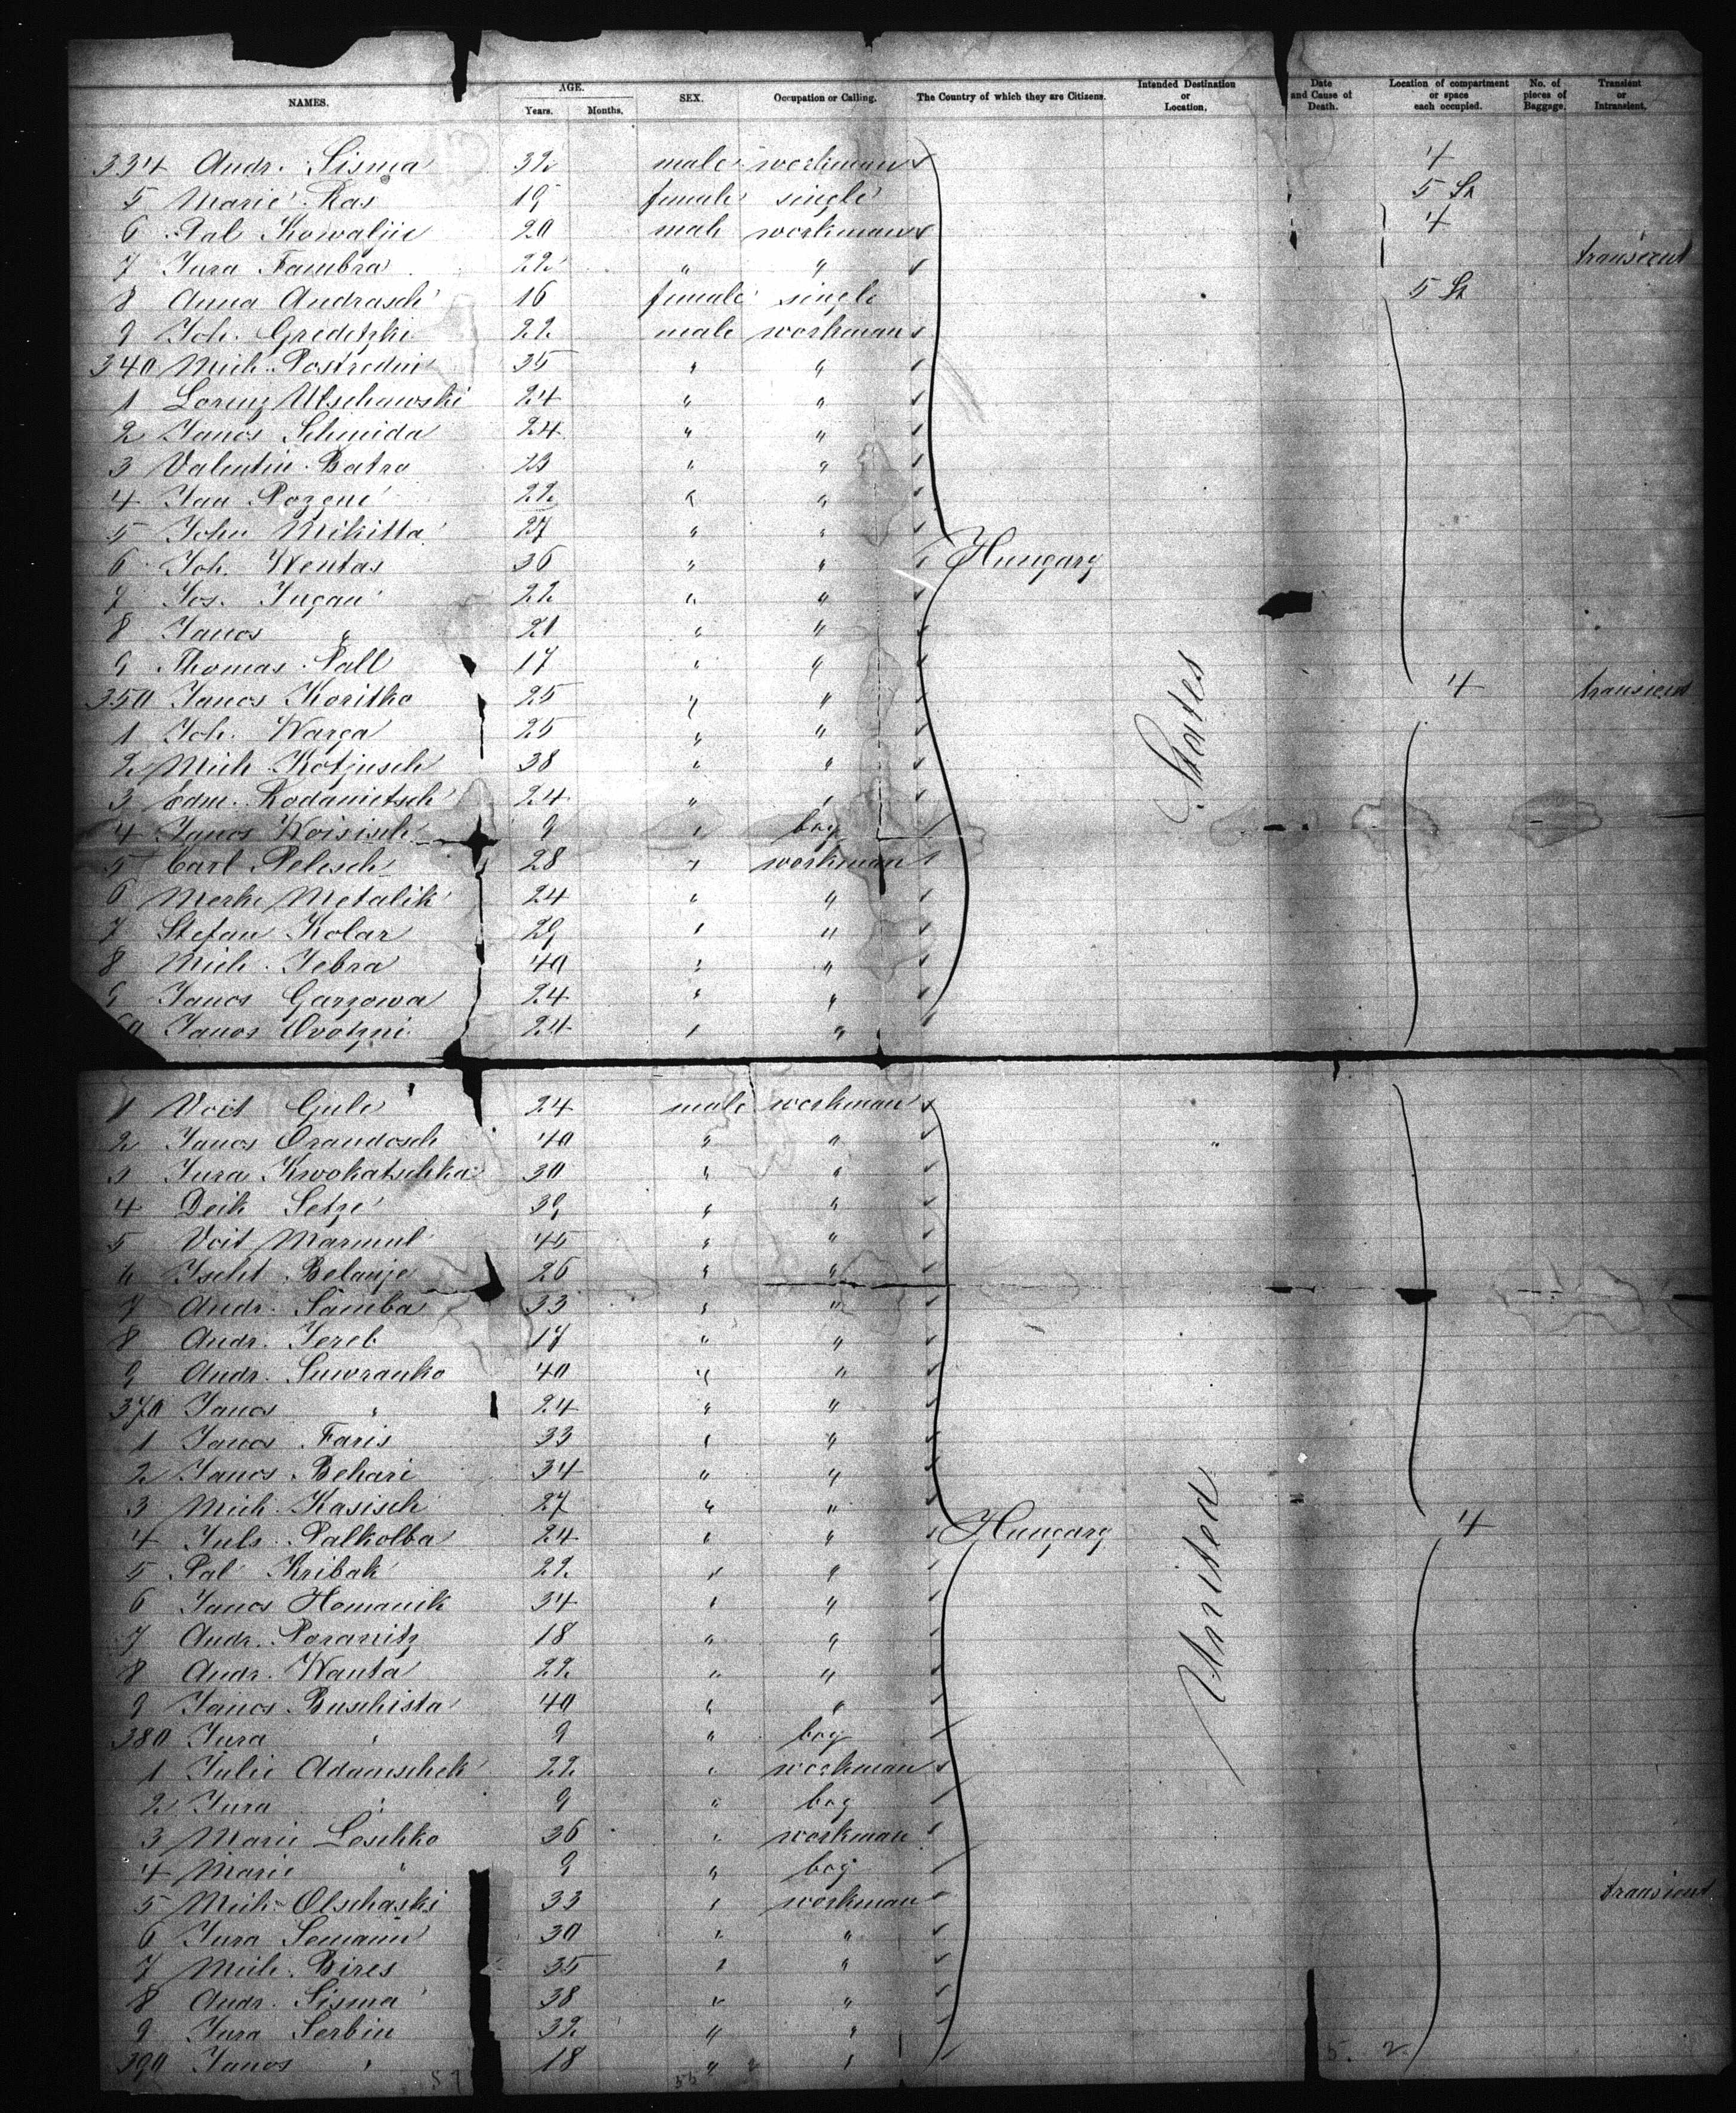 NAMES. AGE. Years. Months. SEX. Occupation or Calling. The Country of which they are Citizens. Intended Destination or Location. Date and Cause of Death. Location of compartment or space each occupied. No. of pieces of Baggage. Transient or Intransient.
334 Andr. Sisma 32 male workman 4
5 Marie Kas 19 female single 5 St
6 Pal Kowaljie 20 male workman 4
7 Jura Fambra 22 " " transient
8 Anna Andrasch 16 female single 5 St
9 Joh. Gredetzki 22 male workman
340 Mich. Postredni 35 " "
1 Lorenz Utschawski 24 " "
2 Janos Schmida 24 " "
3 Valentin Batra 23 " "
4 Jan Pozene 22 " "
5 John Mikitta 27 " "
6 Joh. Wentas 36 " " Hungary
7 Jos. Jugan 22 " "
8 Janos " 21 " "
9 Thomas Pall 17 " "
350 Janos Koritko 25 " " 4 transient
1 Joh. Warga 25 " "
2 Mich Kotjusch 38 " "
3 Edm. Rodanietsch 24 " "
4 Janos Woisisch 9 " boy
5 Carl Pelesch 28 " workman
6 Merki Metalik 24 " "
7 Stefan Kolar 29 " "
8 Mich. Jebra 40 " "
9 Janos Garzowa 24 " "
60 Janos Ovotzni 24 " "
States
1 Voit Gule 24 male workman
2 Janos Orandosch 40 " " "
3 Jura Kwokatschka 30 " "
4 Deik Setze 39 " "
5 Voit Marmul 45 " "
6 Jscht Belanje 26 " "
7 Andr. Samba 33 " "
8 Andr. Jereb 17 " "
9 Andr. Suwranko 40 " "
370 Janos " 24 " "
1 Janos Faris 33 " "
2 Janos Behari 34 " "
3 Mich. Kasisch 27 " "
4 Juls Palkolba 24 " " Hungary 4
5 Pal Kribak 22 " "
6 Janos Homanik 34 " "
7 Andr. Poranitz 18 " "
8 Andr. Wanta 22 " "
9 Janos Buschista 40 " "
380 Jura " 9 " boy
1 Julie Adamschek 22 " workman
2 Jura " 9 " boy
3 Marie Loschko 36 " workman
4 Marie " 9 " boy
5 Mich Olschaski 33 " workman transient
6 Jura Semann 30 " "
7 Mich. Bires 35 " "
8 Andr. Sisma 38 " "
9 Jura Serbin 32 " "
390 Janos " 18 " "
United
55 5. 2